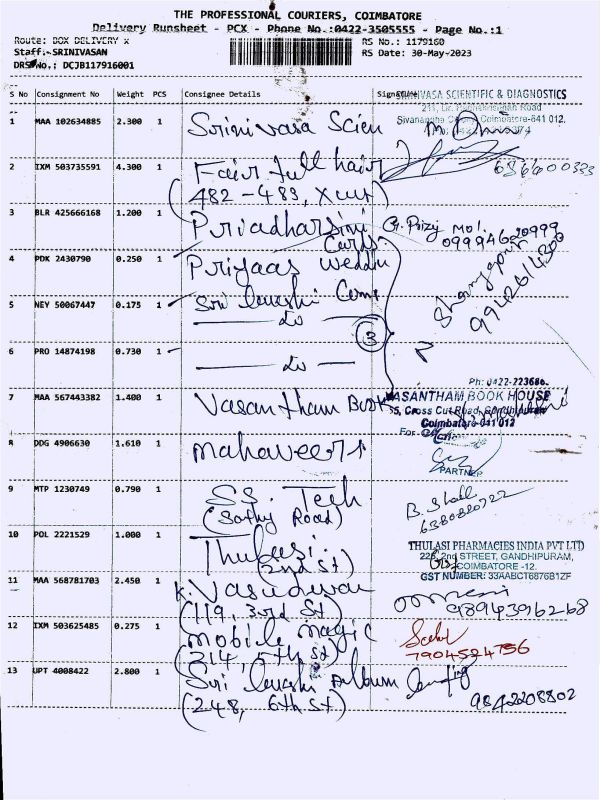 THE PROFESSIONAL COURIERS, COIMBATORE
Delivery Runsheet - PCX - Phone No.:0422-3505555 - Page No.:1
Route: BOX DELIVERY x RS No.: 1179160
Staff:-SRINIVASAN RS Date: 30-May-2023
DRS No.: DCJB117916001
S No Consignment No Weight PCS Consignee Details Signature
SRINIVASA SCIENTIFIC & DIAGNOSTICS
211, Road
Coimbatore-641 012.
1 MAA 102634885 2.300 1 Srinivasa Scien
2 IXM 503735591 4.300 1 Fair full hair
(482-483, Xcut)
3 BLR 425666168 1.200 1 Priadharsini
Cards
4 PDK 2430790 0.250 1 Priyaas Weddin
5 NEY 50067447 0.175 1 Sri
do
3
6 PRO 14874198 0.730 1 do
Ph: 0422-223686.
7 MAA 567443382 1.400 1 Vasantham Book VASANTHAM BOOK HOUSE
Cross Cut Road,
Coimbatore-641 012
For
PARTNER
8 DDG 4906630 1.610 1 Mahaveers
9 MTP 1230749 0.790 1 SS. Tech
(Sathy Road)
6380880722
10 POL 2221529 1.000 1 Thulasi.
(2nd St)
THULASI PHARMACIES INDIA PVT LTD
2nd STREET, GANDHIPURAM,
COIMBATORE -12.
GST NUMBER: 33AABCT6876B1ZF
11 MAA 568781703 2.450 1 K. Vasudevan
(119, 3rd St) 9894396268
12 IXM 503625485 0.275 1 Mobile Magic
(214, 5th St) 7904524756
13 UPT 4008422 2.800 1 Sri Album
(248, 6th St) 9842208802